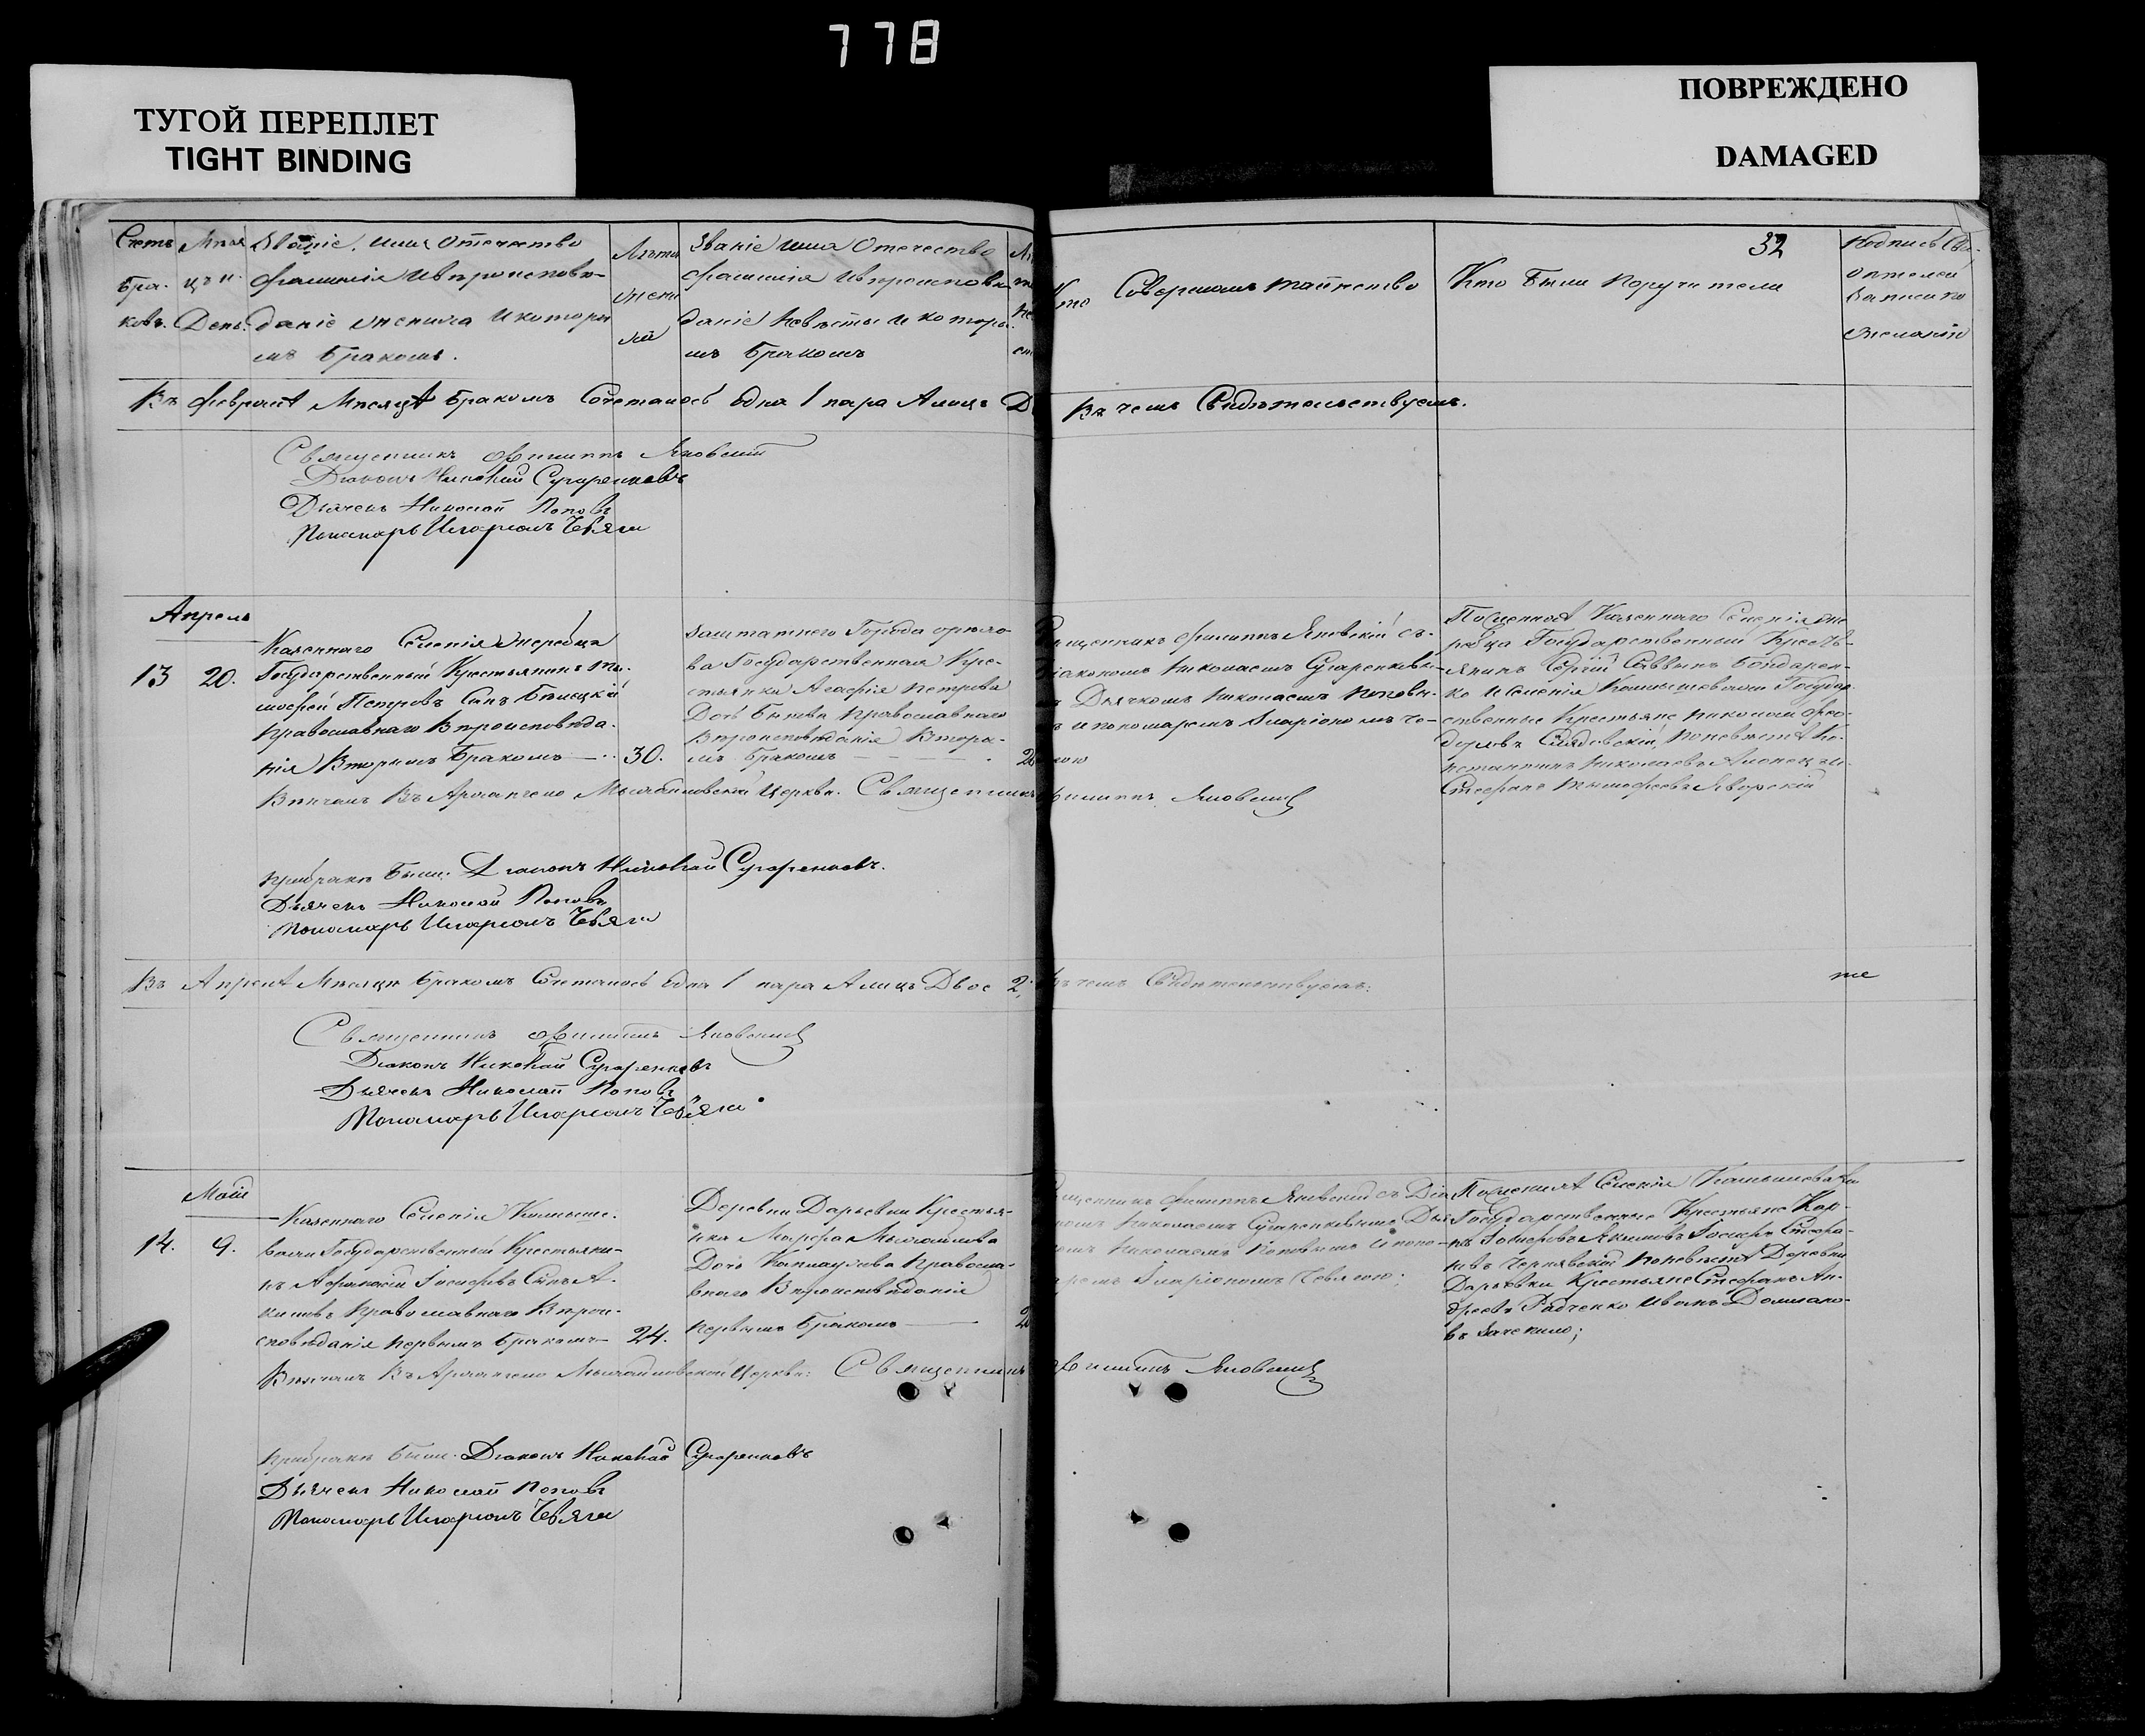 778
ТУГОЙ ПЕРЕПЛЕТ
TIGHT BINDING
ПОВРЕЖДЕНО
DAMAGED
32
Счетъ
бра-
ковъ.
Мѣся
цъ и
День.
Званіе, имя Отечество
фамилія и вѣроисповѣ-
даніе жениха и которы
мъ бракомъ.
Лѣта
жени
Званіе имя Отечество
фамилія и вѣроисповѣ
даніе невѣсты и которы
мъ бракомъ
Кто Совершалъ таинство
Кто были поручители
Въ февралѣ Мѣсяцѣ бракомъ Сочеталось одна 1 пара А лицъ
Въ чемъ Свидѣтельствуемъ.
Священникъ Филиппъ Яновскій
Діаконъ Николай Сугаренковъ
Дьячекъ Николай Поповъ
Пономарь Иларіонъ Чевяга
Апрель
13 20.
Казеннаго Селенія Жеребца
Государственный Крестьянинъ Ти-
мофей Петровъ Сынъ Билецкій
православнаго Вѣроисповѣда-
нія Вторымъ бракомъ
30.
Заштатнего Города орѣхо-
ва Государственная Кре-
стьянка Агафія Петрова
Дочь Быкова православнаго
Вѣроисповѣданія Вторы-
мъ бракомъ
Священникъ Филиппъ Яновскій съ
Діакономъ Николаемъ Сугаренковы-
Дьячкомъ Николаемъ Поповы-
и пономаремъ Иларіономъ Че-
По женихѣ Казеннаго Селенія Же-
ребца Государственный Кресть-
янинъ Сергій Саввинъ Бондарен-
ко и селенія Камышевахи Государ-
ственные Крестьяне Николай Фео-
доровъ По невѣстѣ Ко-
нстантинъ Николаевъ
Стефанъ Тимофеевъ Яворскій
Вѣнчалъ Въ Архангело Михайловской Церкви. Священникъ Филиппъ Яновскій
При бракѣ были: Діаконъ Николай Сугаренковъ.
Дьячекъ Николай Поповъ
Пономарь Иларіонъ Чевяга
Въ Апрелѣ Мѣсяцѣ бракомъ Сочеталось одна 1 пара А лицъ Двое 2. Въ чемъ Свидѣтельствуемъ.
Священникъ Филиппъ Яновскій
Діаконъ Николай Сугаренковъ
Дьячекъ Николай Поповъ
Пономарь Иларіонъ Чевяга
Маій
14. 9.
Казеннаго Селенія Камыше-
вахи Государственный Крестьяни-
нъ Афанасій Іосифовъ Сынъ А-
кимовъ православнаго Вѣрои-
сповѣданія первымъ бракомъ
24.
Деревни Дарьевки Крестья-
нка Марфа Михайлова
Дочь православ-
внаго Вѣроисповѣданія
первымъ бракомъ
Священникъ Филиппъ Яновскій съ Діа
Николаемъ Сугаренковымъ Дья
Николаемъ Поповымъ и поно-
Иларіономъ Чевягою;
По женихѣ Селенія Камышевахи
Государственные Крестьяне Кар-
пъ Іосифовъ Якимовъ Іосифъ Стефа-
новъ Чернявскій По невѣстѣ Деревни
Дарьевки Крестьяне Стефанъ Ан-
дреевъ Радченко Иванъ
Вѣнчалъ Въ Архангело Михайловской Церкви: Священникъ Филиппъ Яновскій
При бракѣ были. Діаконъ Николай Сугаренковъ
Дьячекъ Николай Поповъ
Пономарь Иларіонъ Чевяга